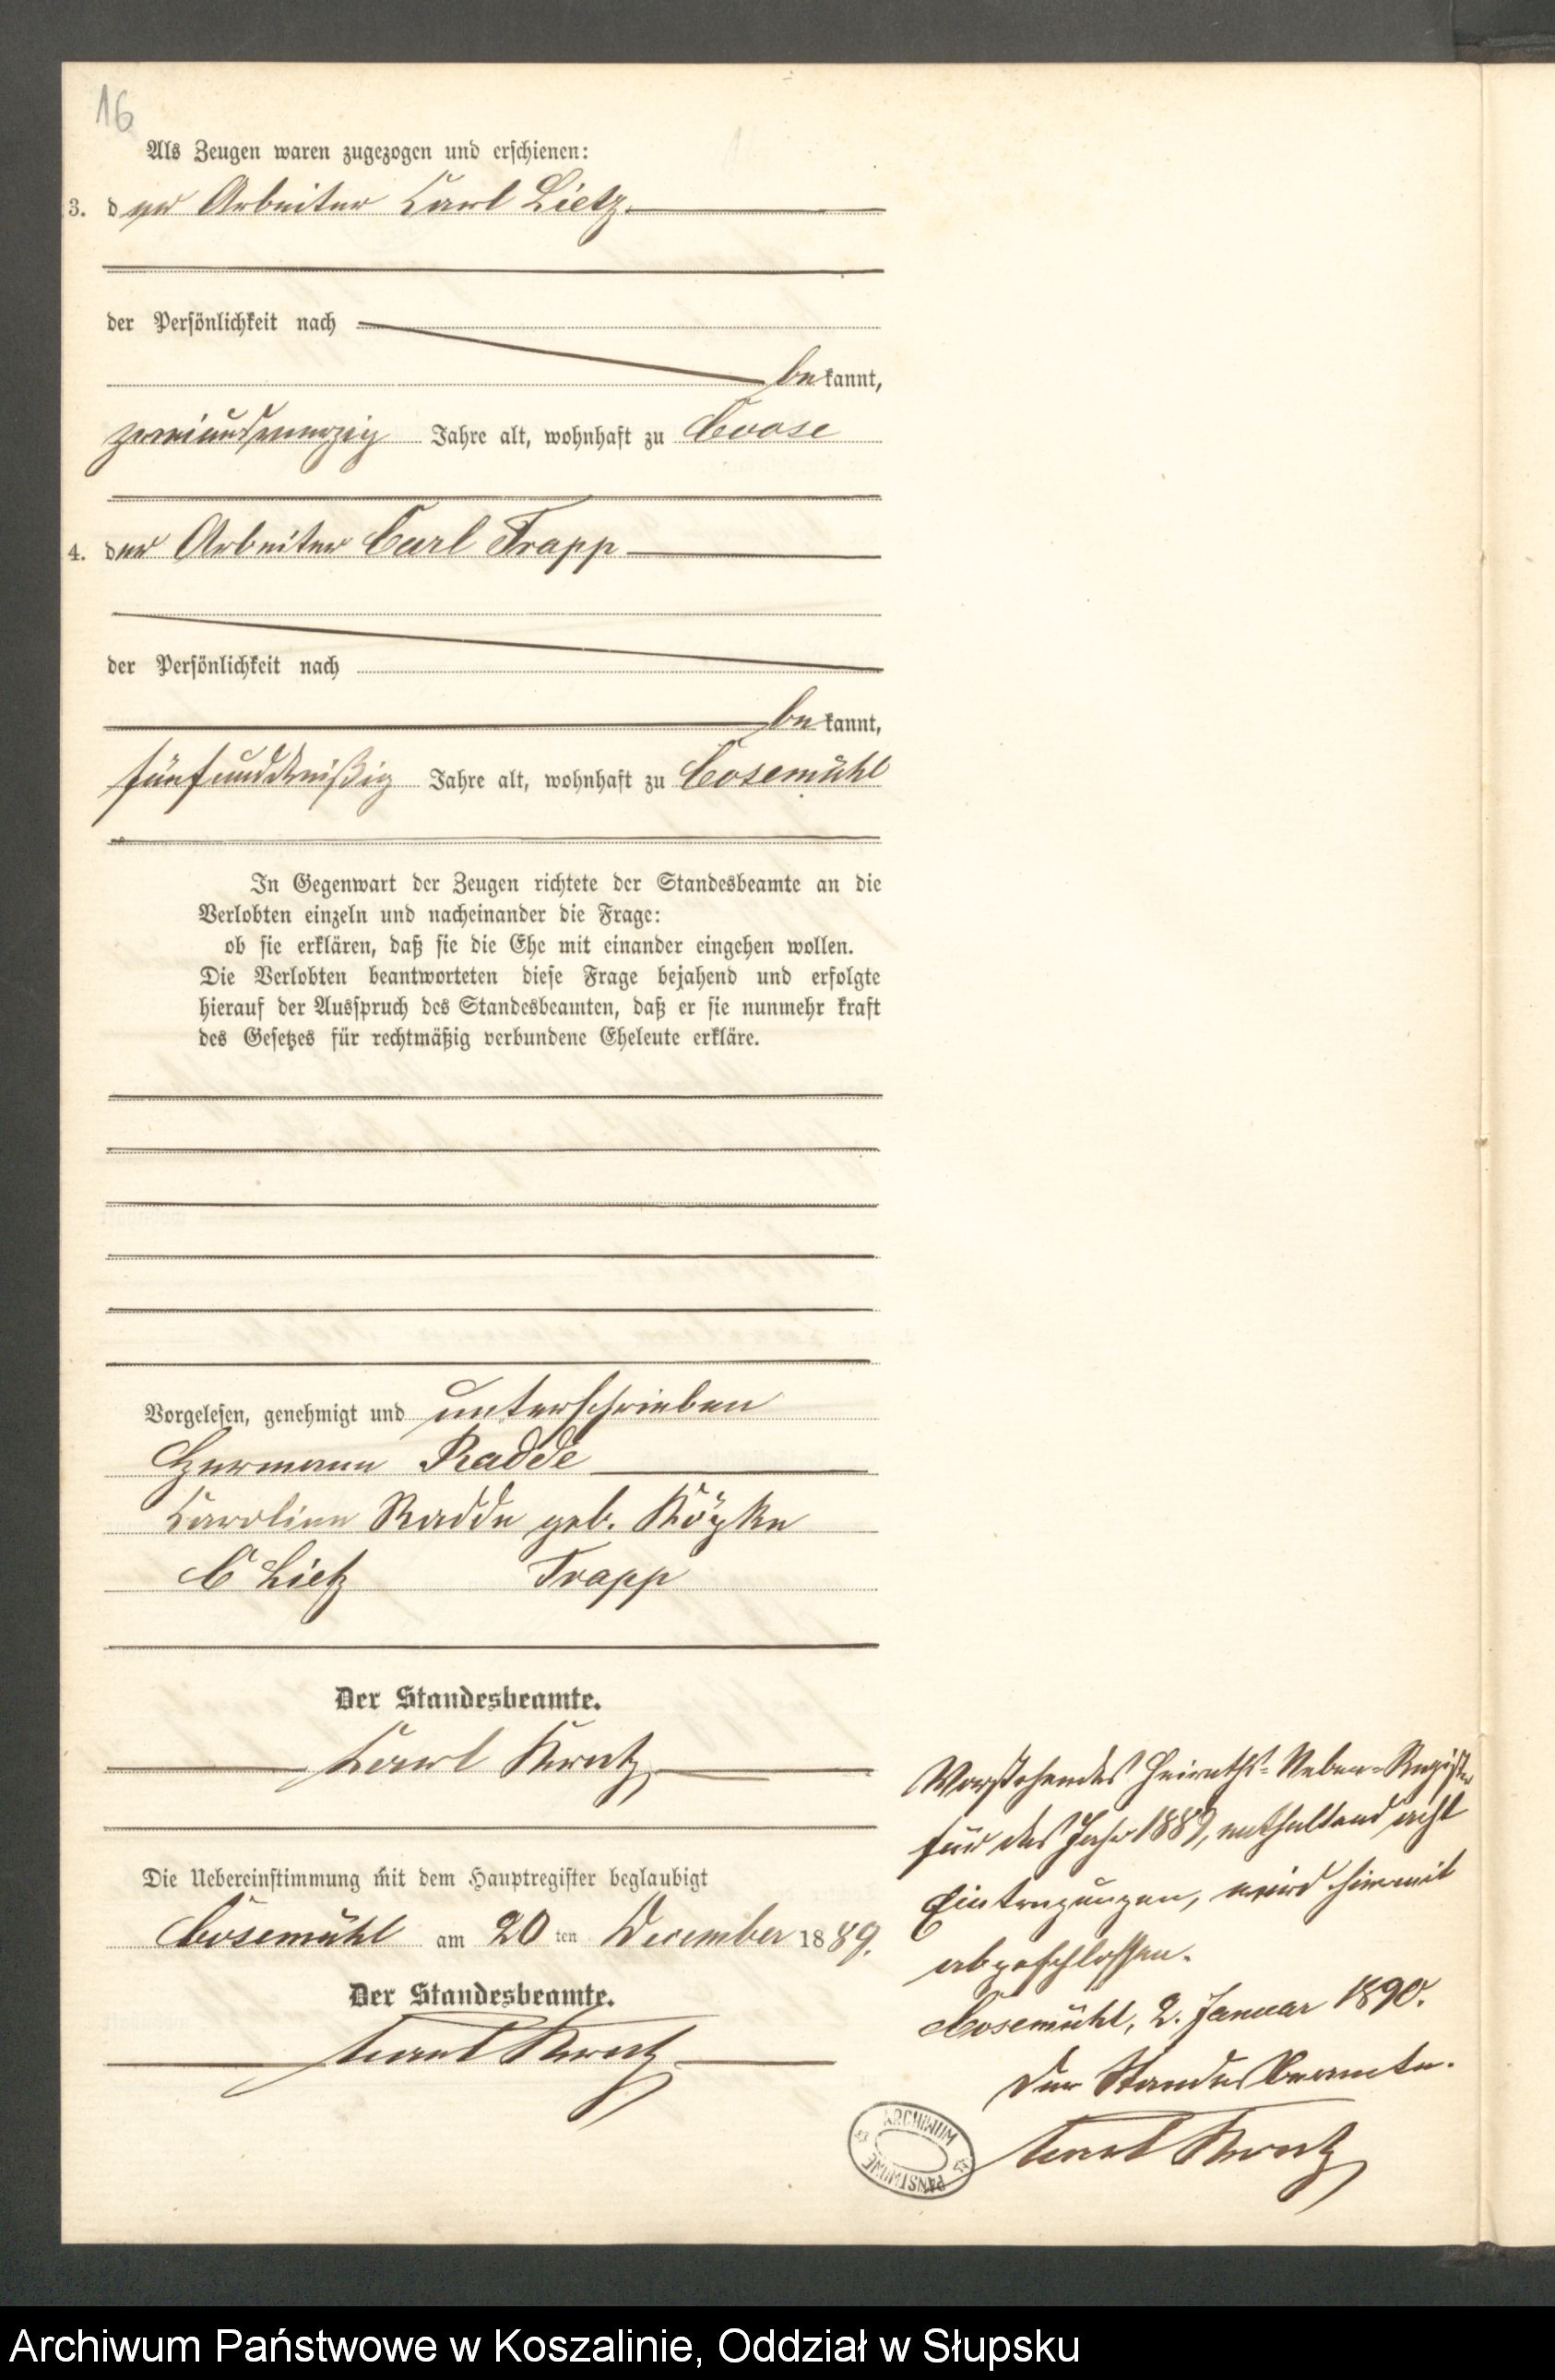 16
Als Zeugen waren zugezogen und erschienen:
3. der Arbeiter Carl Lietz
der Persönlichkeit nach
bekannt,
Jahre alt, wohnhaft zu Coose
4. der Arbeiter Carl Trapp
der Persönlichkeit nach
bekannt,
fünfunddreißig Jahre alt, wohnhaft zu Cosemühl
In Gegenwart der Zeugen richtete der Standesbeamte an die
Verlobten einzeln und nacheinander die Frage:
ob sie erklären, daß sie die Ehe mit einander eingehen wollen.
Die Verlobten beantworteten diese Frage bejahend und erfolgte
hierauf der Ausspruch des Standesbeamten, daß er sie nunmehr kraft
des Gesetzes für rechtmäßig verbundene Eheleute erkläre.
Vorgelesen, genehmigt und unterschrieben
Hermann Radde
Caroline Radde geb. Köpke
C Lietz Trapp
Der Standesbeamte.
Carl
Die Uebereinstimmung mit dem Hauptregister beglaubigt
Cosemühl am 20ten December 1889.
Der Standesbeamte.
Carl
Vorstehendes Heiraths-Neben-Register
für das Jahr 1889, enthaltend acht
Eintragungen, wird hiermit
abgeschlossen.
Cosemühl, 2. Januar 1890.
Der Standesbeamte.
Carl
ARCHIWUM
PAŃSTWOWE
Archiwum Państwowe w Koszalinie, Oddział w Słupsku